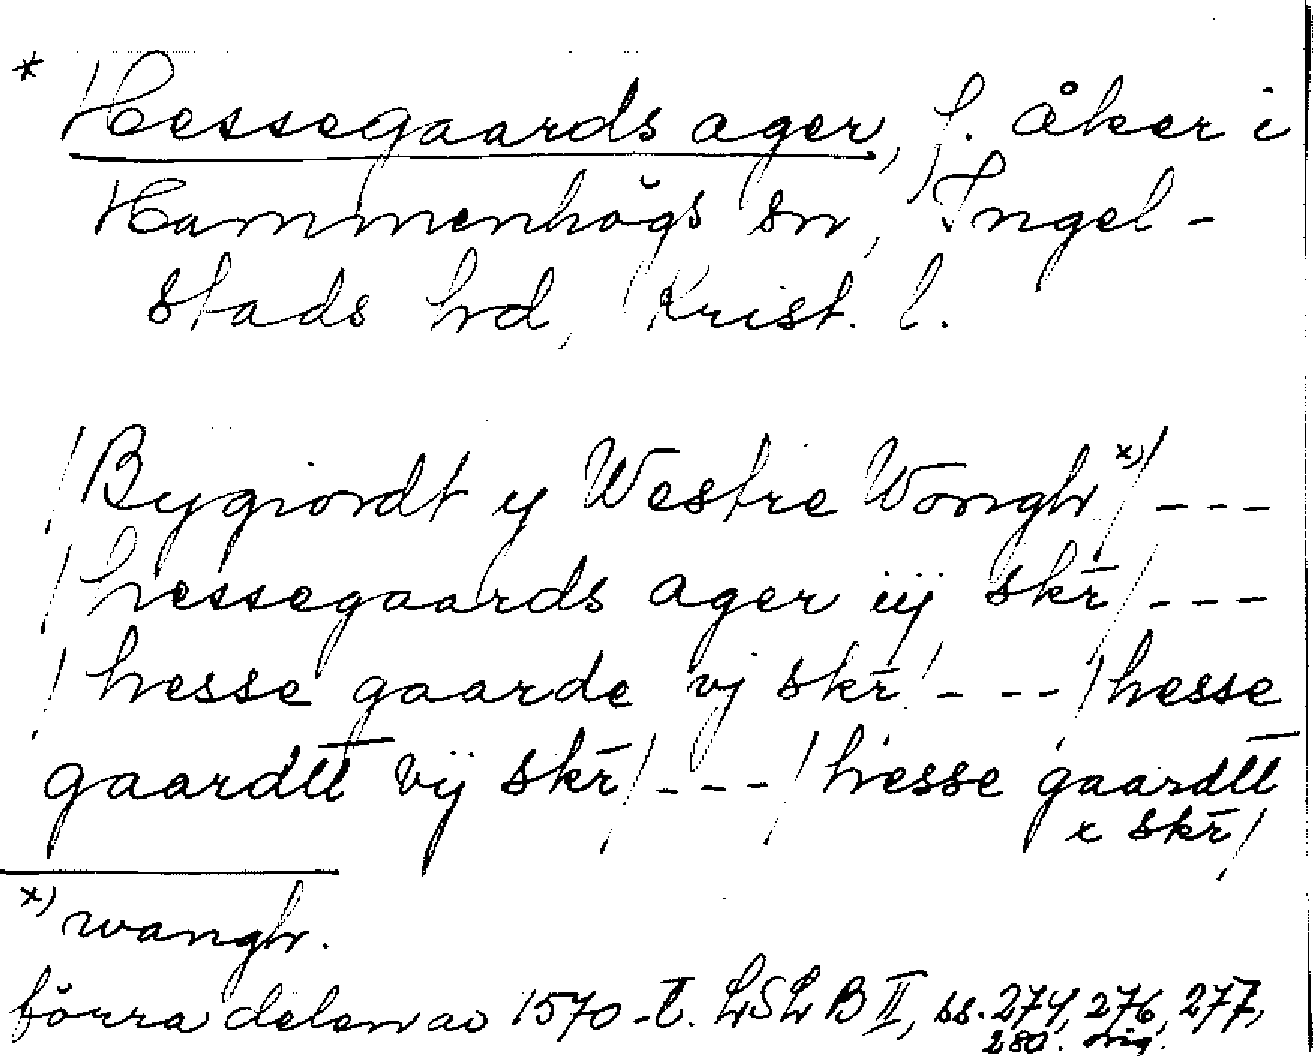 * Hessegaards ager, f. åker i
Hammenhögs sn, Ingel-
stads hd, Krist. l.
/Bygiordt y Westre Wongh x)/ ---
/hessegaards ager iij skr̄/ ---
/hesse gaarde vj skr̄/ --- /hesse
gaardtt vij skr̄/ --- /hesse gaardtt
x skr̄/
x) wangh.
förra delen av 1570-t. LSLB II, ss. 274, 276, 277,
280. orig.